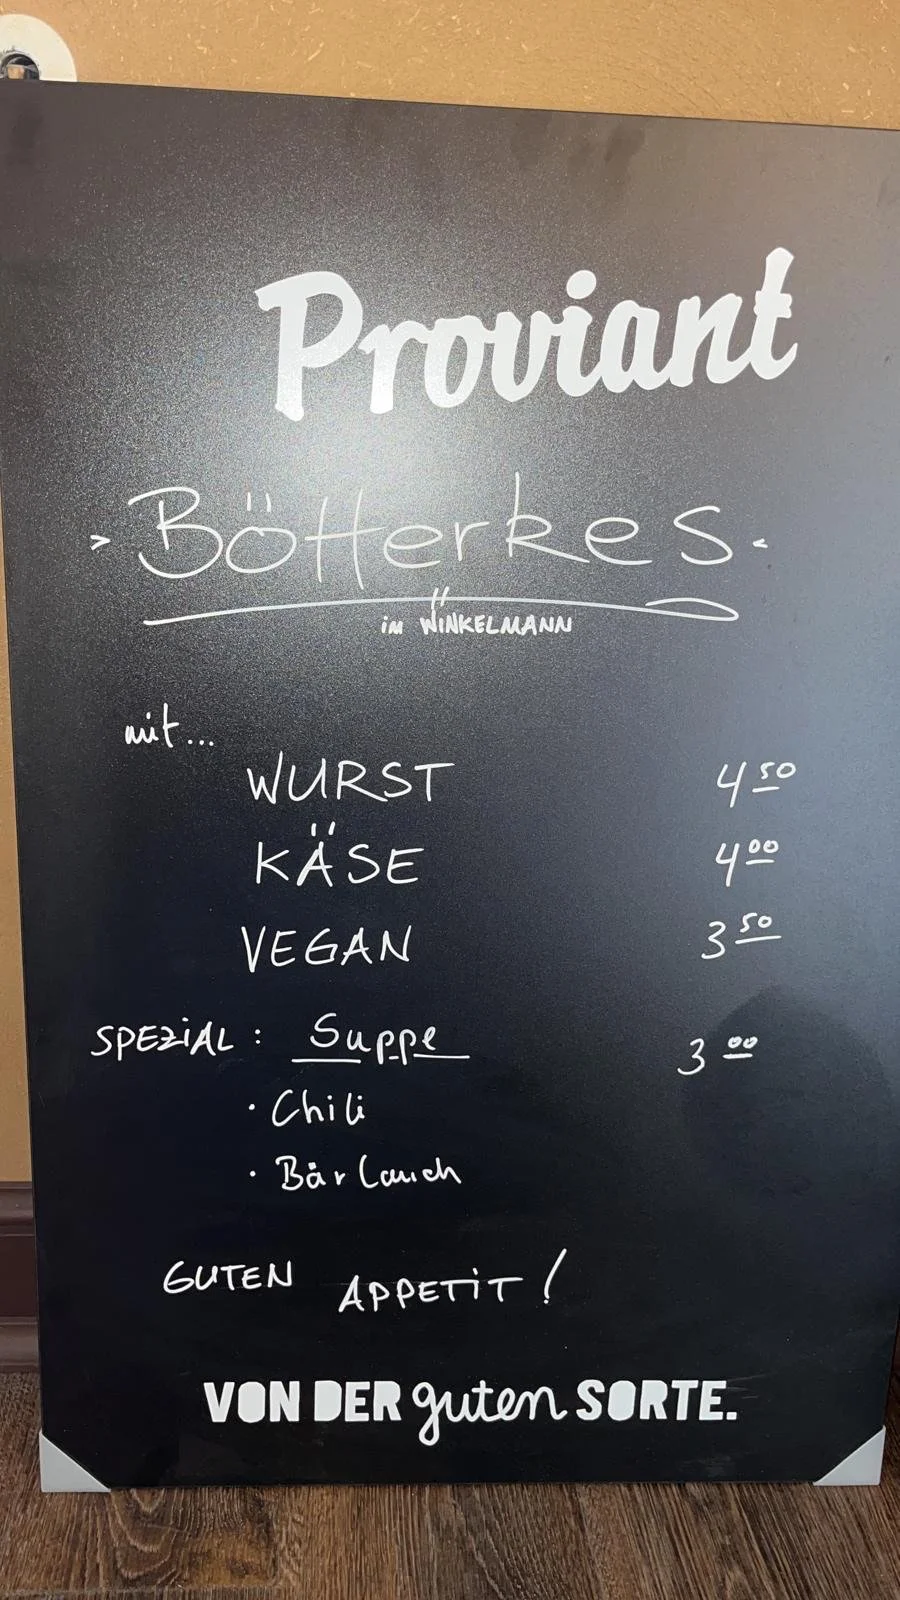 Proviant
> Bötterkes <
im WINKELMANN
mit...
WURST 4 50
KÄSE 4 00
VEGAN 3 50
SPEZiAL : Suppe 3 00
· Chili
· Bärlauch
GUTEN APPETiT !
VON DER guten SORTE.